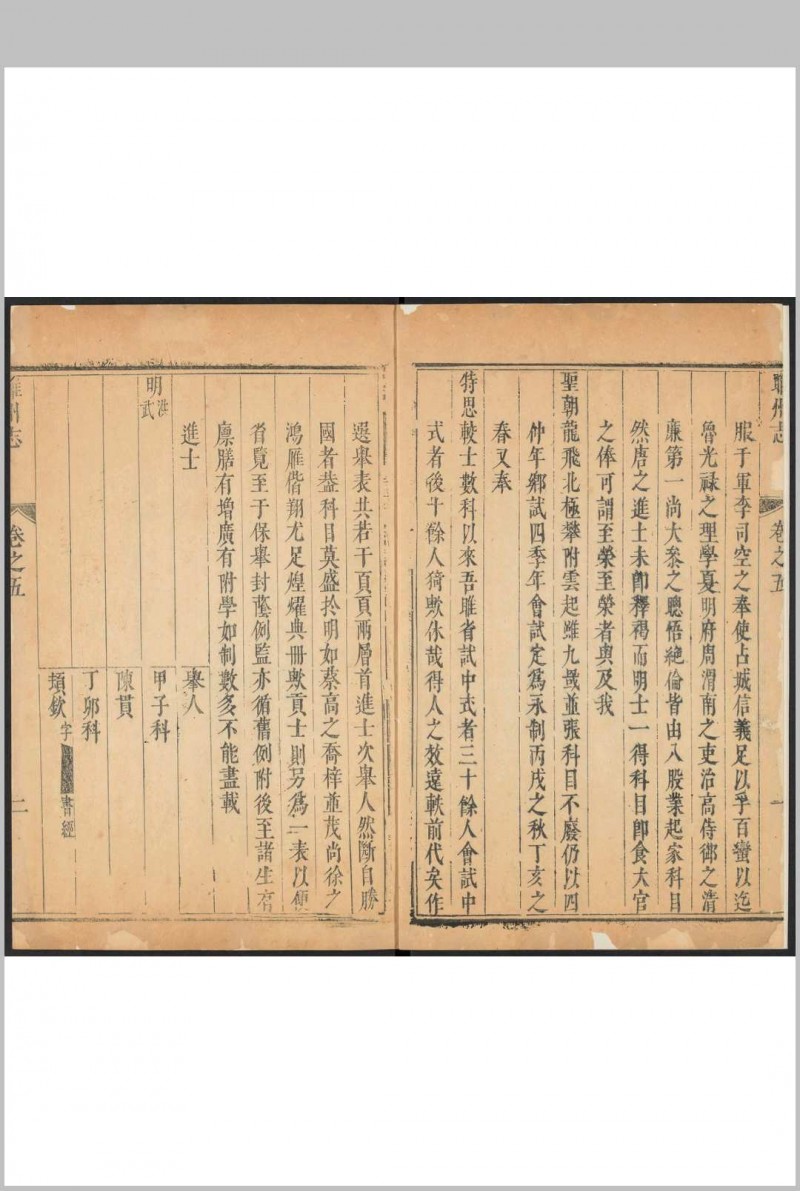 睢州志 卷之五 一
服于軍李司空之奉使占城信義足以孚百蠻以迄
魯光祿之理學夏明府周渭南之吏治高侍御之清
廉第一尚大叅之聰悟絕倫皆由入股業起家科目
然唐之進士未卽釋褐而明士一得科目卽食大官
之俸可謂至榮至榮者與及我
聖朝龍飛北極攀附雲起雖九畿並張科目不廢仍以四
仲年鄉試四季年會試定爲永制丙戌之秋丁亥之
春又奉
特恩較士數科以來吾睢省試中式者三十餘人會試中
式者後十餘人猗歟休哉得人之效遠軼前代矣作
選舉表共若干頁頁兩層首進士次舉人然斷自勝
國者葢科目莫盛於明如蔡高之喬梓並茂尚徐之
鴻雁偕翔尤足煌耀典冊歟貢士則另爲一表以便
省覽至于保舉封蔭例監亦循舊例附後至諸生有
廩膳有增廣有附學如制數多不能盡載
進士 舉人
明 洪武 甲子科
陳貫
丁卯科
頊欽 字 書經
睢州志 卷之五 二